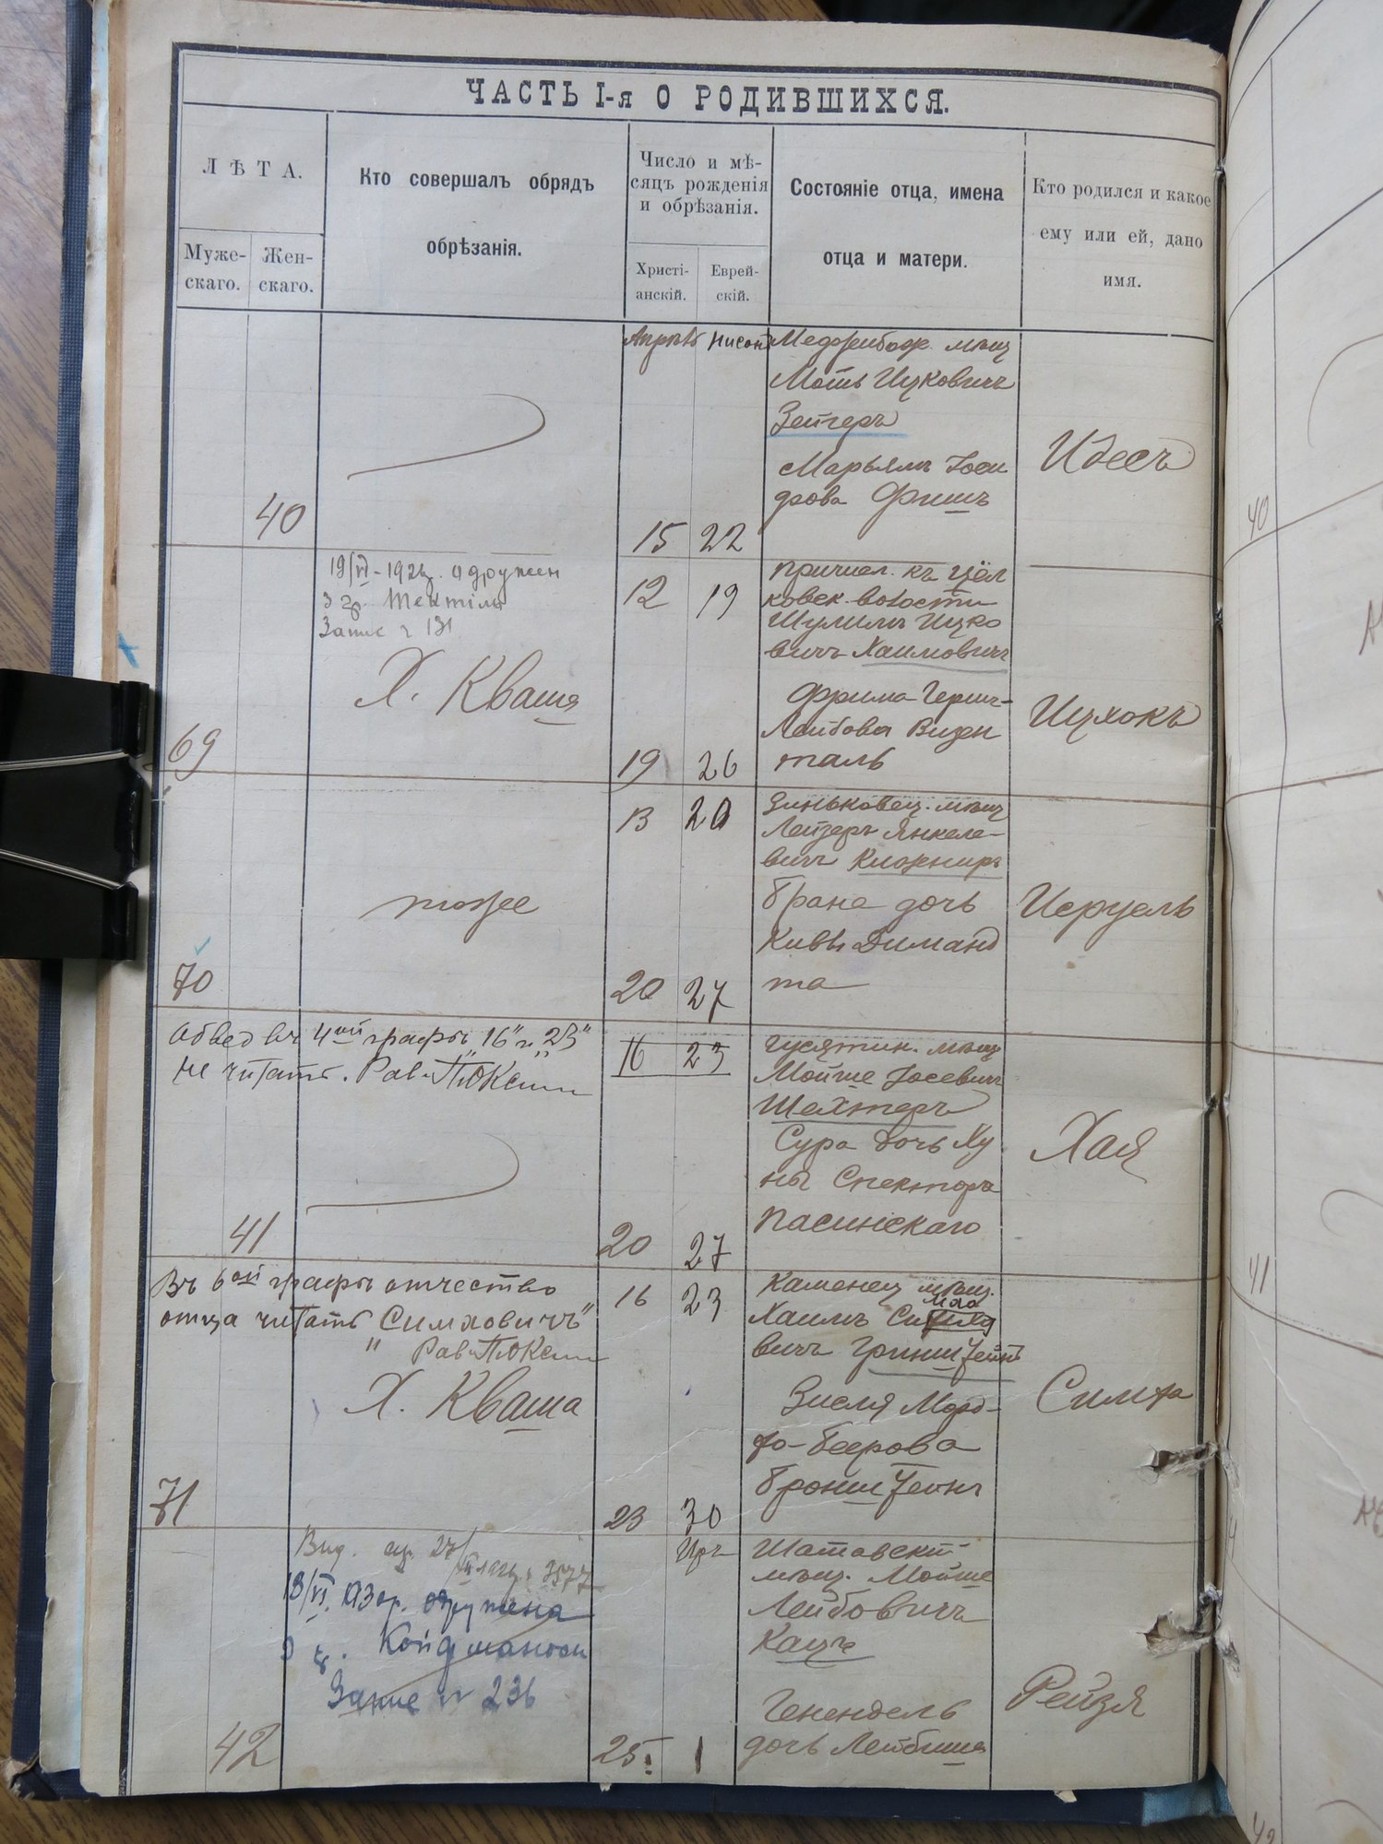 ЧАСТЬ I-я О РОДИВШИХСЯ.
ЛѢТА.
Муже-
скаго.
Жен-
скаго.
Кто совершалъ обрядъ
обрѣзанія.
Число и мѣ-
сяцъ рожденія
и обрѣзанія.
Христі-
анскій.
Еврей-
скій.
Состояніе отца, имена
отца и матери.
Кто родился и какое
ему или ей, дано
имя.
40
Апрѣль
Нисонъ
15
22
Меджибож. мѣщ
Моть Ицковичъ
Зейгеръ
Марьямъ Іоси
фова Фишъ
Идесъ
69
З гр.
Запис ч 131
Х. Кваша
12
19
19
26
Причисл. къ
ковек. волости
Шулимъ Ицко
вичъ Хаимовичъ
Фрима Герш-
Лейбова Визен
таль
Ицхокъ
70
тоже
13
20
20
27
Зиньковец. мѣщ
Лейзеръ Янкеле-
вичъ Клорниръ
Брана дочь
Кивы Диманд
та
Исруель
въ 4ой графѣ 16" и "23"
не читать. Рав.
41
16
23
20
27
Гусятин. мѣщ
Мойше Іосевичъ
Шехтеръ
Сура дочь Ху
ны Спектора
Пасинскаго
Хая
Въ 6ой графѣ отчество
отца читать Симховичъ"
" Рав.
Х. Кваша
71
16
23
23
30
Каменец. мѣщ.
Хаимъ
вичъ Гринштейнъ
Зисля Морд-
ко-Беерова
Бронштейнъ
Симха
42
18/VI. одружена
з гр. Койфманом
Запис ч 236
25.
Иръ
1
Шатавскій
мѣщ. Мойше
Лейбовичъ
Кацъ
Генендель
дочь Лейбиша
Рейзя
40
41